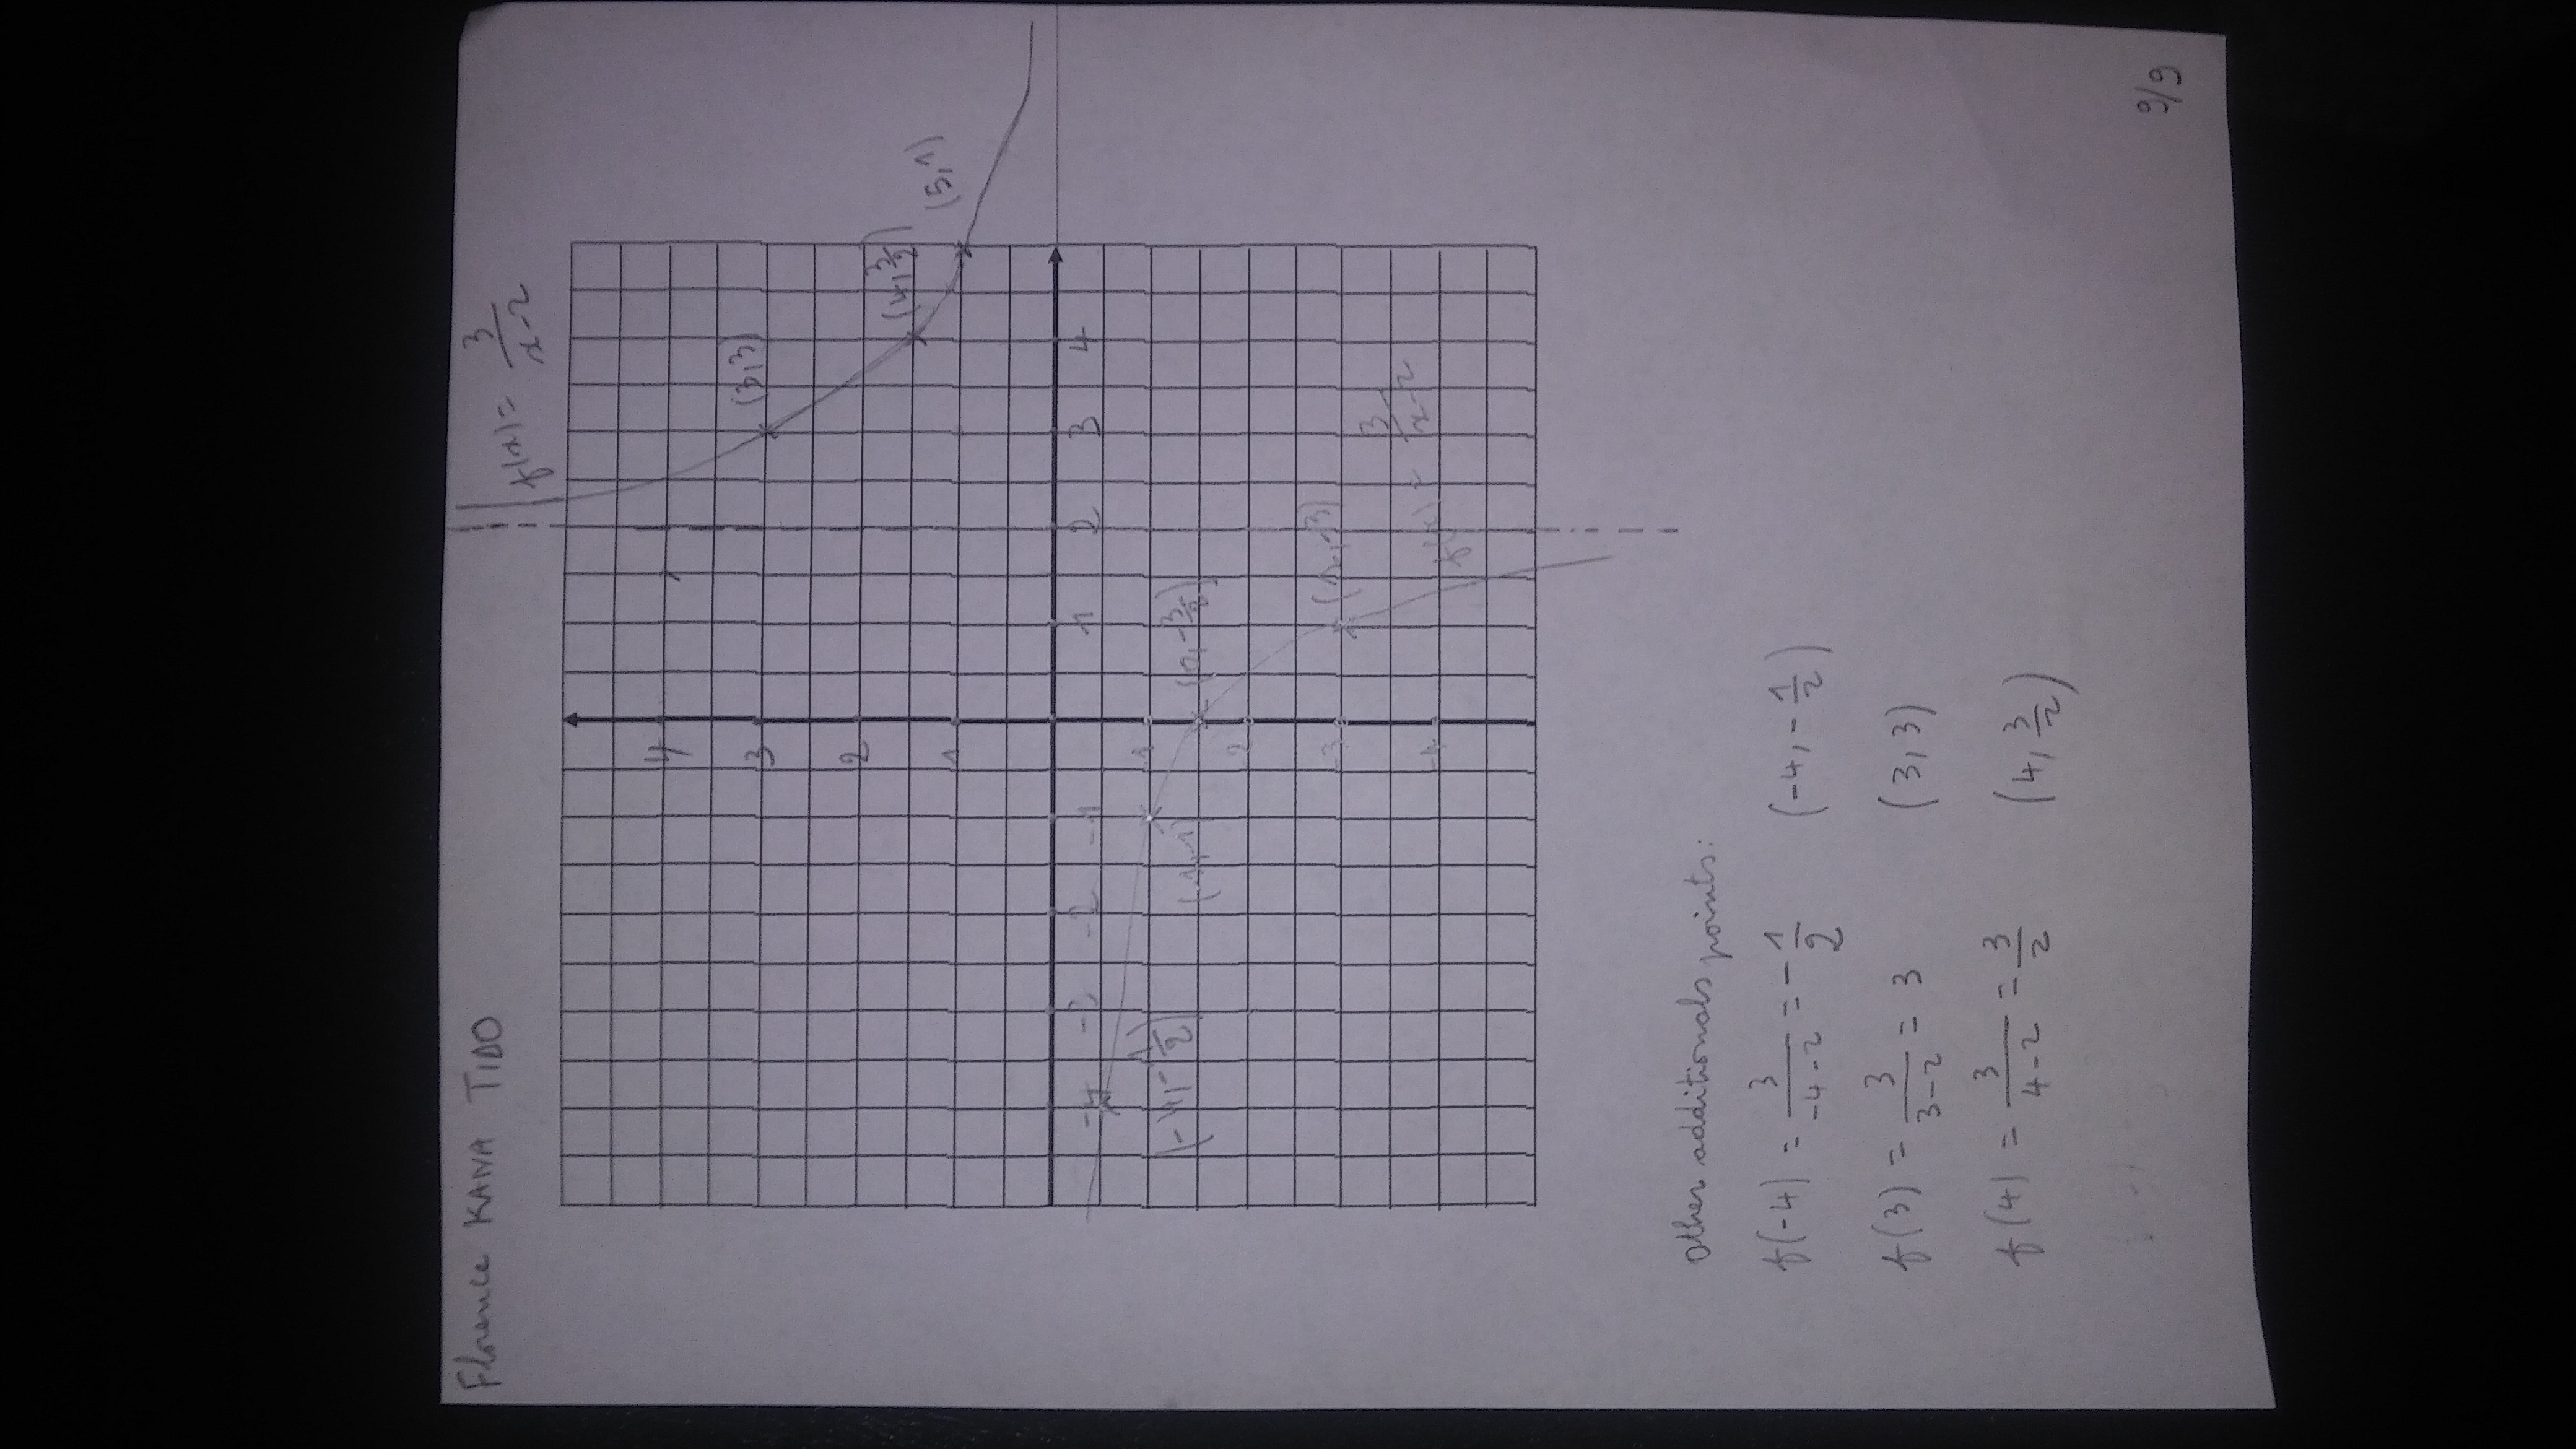 Florence KANA TIDO
f(x) = 3/(x-2)
4
3 (3,3)
2
(4, 3/2)
1 (5,1)
-4 -3 -2 -1 1 2 3 4
(-4, -1/2) (-1,-1) -1 (0, -3/2)
-2
-3 (1,-3)
-4 f(x) = 3/(x-2)
Other additionals points:
f(-4) = 3/(-4-2) = -1/2 (-4, -1/2)
f(3) = 3/(3-2) = 3 (3,3)
f(4) = 3/(4-2) = 3/2 (4, 3/2)
9/9